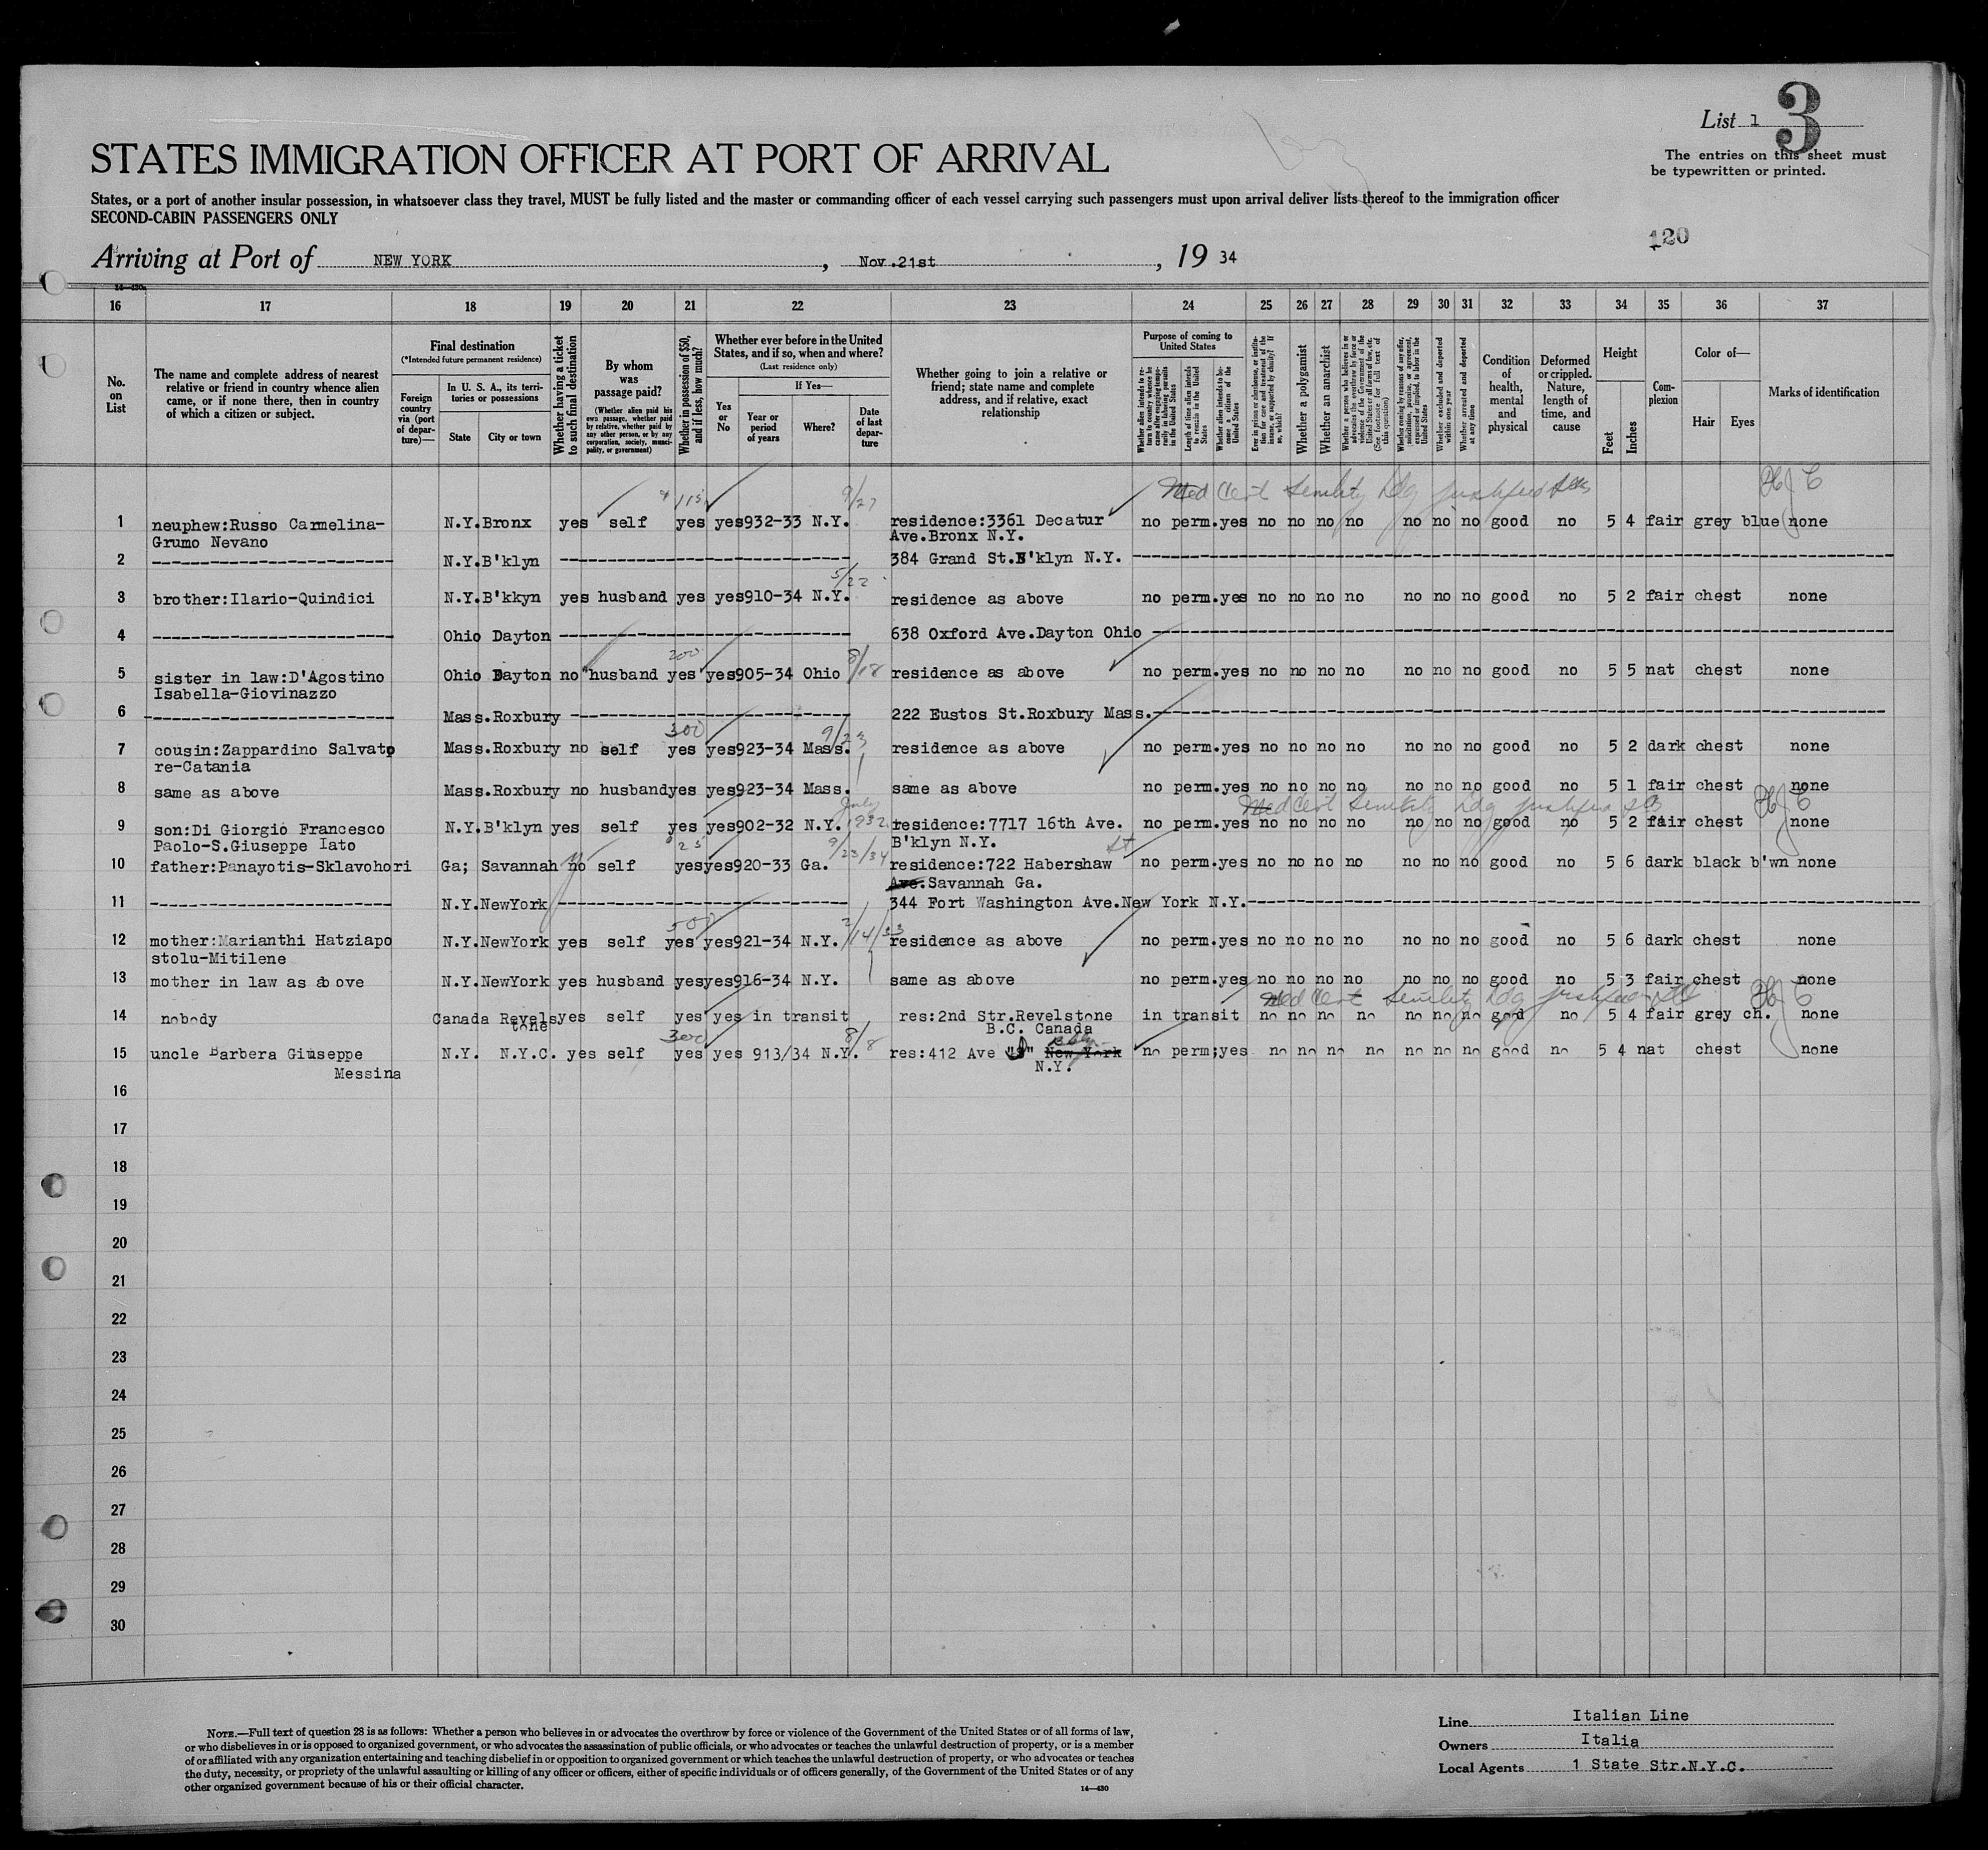 List 1
3
The entries on this sheet must
be typewritten or printed.
STATES IMMIGRATION OFFICER AT PORT OF ARRIVAL
States, or a port of another insular possession, in whatsoever class they travel, MUST be fully listed and the master or commanding officer of each vessel carrying such passengers must upon arrival deliver lists thereof to the immigration officer
SECOND-CABIN PASSENGERS ONLY
120
Arriving at Port of NEW YORK, Nov.21st, 19 34
16 17 18 19 20 21 22 23 24 25 26 27 28 29 30 31 32 33 34 35 36 37
No. on List
The name and complete address of nearest relative or friend in country whence alien came, or if none there, then in country of which a citizen or subject.
Final destination
(*Intended future permanent residence)
Foreign country via (port of departure)—
In U. S. A., its territories or possessions
State
City or town
Whether having a ticket to such final destination
By whom was passage paid?
(Whether alien paid his own passage, whether paid by relative, whether paid by any other person, or by any corporation, society, municipality, or government)
Whether in possession of $50, and if less, how much?
Whether ever before in the United States, and if so, when and where?
(Last residence only)
Yes or No
If Yes—
Year or period of years
Where?
Date of last departure
Whether going to join a relative or friend; state name and complete address, and if relative, exact relationship
Purpose of coming to United States
Whether alien intends to return to country whence he came after engaging temporarily in laboring pursuits in the United States
Length of time alien intends to remain in the United States
Whether alien intends to become a citizen of the United States
Ever in prison or almshouse, or institution for care and treatment of the insane, or supported by charity? If so, which?
Whether a polygamist
Whether an anarchist
Whether a person who believes in or advocates the overthrow by force or violence of the Government of the United States or all forms of law, etc. (See footnote for full text of this question)
Whether coming by reasons of any offer, solicitation, promise, or agreement, expressed or implied, to labor in the United States
Whether excluded and deported within one year
Whether arrested and deported at any time
Condition of health, mental and physical
Deformed or crippled. Nature, length of time, and cause
Height
Feet
Inches
Complexion
Color of—
Hair
Eyes
Marks of identification
115 9/27 Med Cert Senility Ldg justified
1 neuphew:Russo Carmelina- N.Y.Bronx yes self yes yes932-33 N.Y. residence:3361 Decatur no perm.yes no no no no no no no good no 5 4 fair grey blue none
Grumo Nevano Ave.Bronx N.Y.
2 N.Y.B'klyn 384 Grand St.B'klyn N.Y.
5/22
3 brother:Ilario-Quindici N.Y.B'kkyn yes husband yes yes910-34 N.Y. residence as above no perm.yes no no no no no no no good no 5 2 fair chest none
4 Ohio Dayton 638 Oxford Ave.Dayton Ohio
200 8/18
5 sister in law:D'Agostino Ohio Dayton no husband yes yes905-34 Ohio residence as above no perm.yes no no no no no no no good no 5 5 nat chest none
Isabella-Giovinazzo
6 Mass.Roxbury 222 Eustos St.Roxbury Mass.
300 9/23
7 cousin:Zappardino Salvato Mass.Roxbury no self yes yes923-34 Mass. residence as above no perm.yes no no no no no no no good no 5 2 dark chest none
re-Catania
8 same as above Mass.Roxbury no husbandyes yes923-34 Mass. same as above no perm.yes no no no no no no no good no 5 1 fair chest none
July 1932 Med Cert Senility Ldg justified
9 son:Di Giorgio Francesco N.Y.B'klyn yes self yes yes902-32 N.Y. residence:7717 16th Ave. no perm.yes no no no no no no no good no 5 2 fair chest none
Paolo-S.Giuseppe Iato B'klyn N.Y.
25 9/23/34 St
10 father:Panayotis-Sklavohori Ga; Savannah no self yesyes920-33 Ga. residence:722 Habershaw no perm.yes no no no no no no no good no 5 6 dark black b'wn none
Ave.Savannah Ga.
11 N.Y.NewYork 344 Fort Washington Ave.New York N.Y.
500 2/14/33
12 mother:Marianthi Hatziapo N.Y.NewYork yes self yes yes921-34 N.Y. residence as above no perm.yes no no no no no no no good no 5 6 dark chest none
stolu-Mitilene
13 mother in law as above N.Y.NewYork yes husband yesyes916-34 N.Y. same as above no perm.yes no no no no no no no good no 5 3 fair chest none
Med Cert Senility Ldg justified
14 nobody Canada Revels yes self yes yes in transit res:2nd Str.Revelstone in transit no no no no no no no good no 5 4 fair grey ch. none
tone B.C. Canada
300 8/8
15 uncle Barbera Giuseppe N.Y. N.Y.C. yes self yes yes 913/34 N.Y. res:412 Ave New York no perm;yes no no no no no no no good no 5 4 nat chest none
Messina N.Y.
16
17
18
19
20
21
22
23
24
25
26
27
28
29
30
NOTE.—Full text of question 28 is as follows: Whether a person who believes in or advocates the overthrow by force or violence of the Government of the United States or of all forms of law,
or who disbelieves in or is opposed to organized government, or who advocates the assassination of public officials, or who advocates or teaches the unlawful destruction of property, or is a member
of or affiliated with any organization entertaining and teaching disbelief in or opposition to organized government or which teaches the unlawful destruction of property, or who advocates or teaches
the duty, necessity, or propriety of the unlawful assaulting or killing of any officer or officers, either of specific individuals or of officers generally, of the Government of the United States or of any
other organized government because of his or their official character.
14—430
Line Italian Line
Owners Italia
Local Agents 1 State Str.N.Y.C.